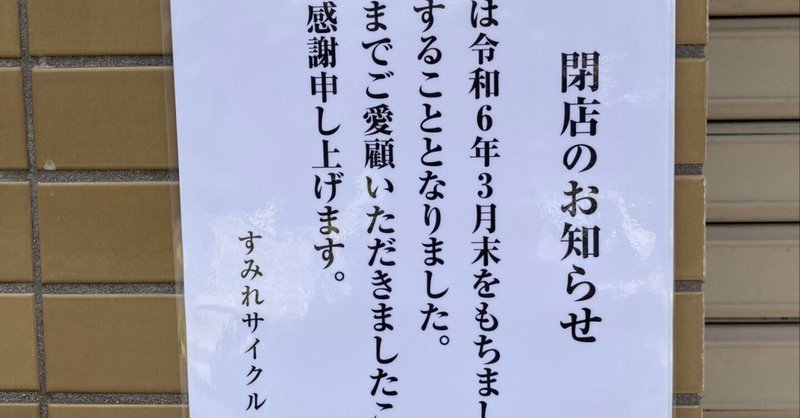 閉店のお知らせ
は令和6年3月末をもちまし
することとなりました。
までご愛顧いただきましたこ
感謝申し上げます。
すみれサイクル